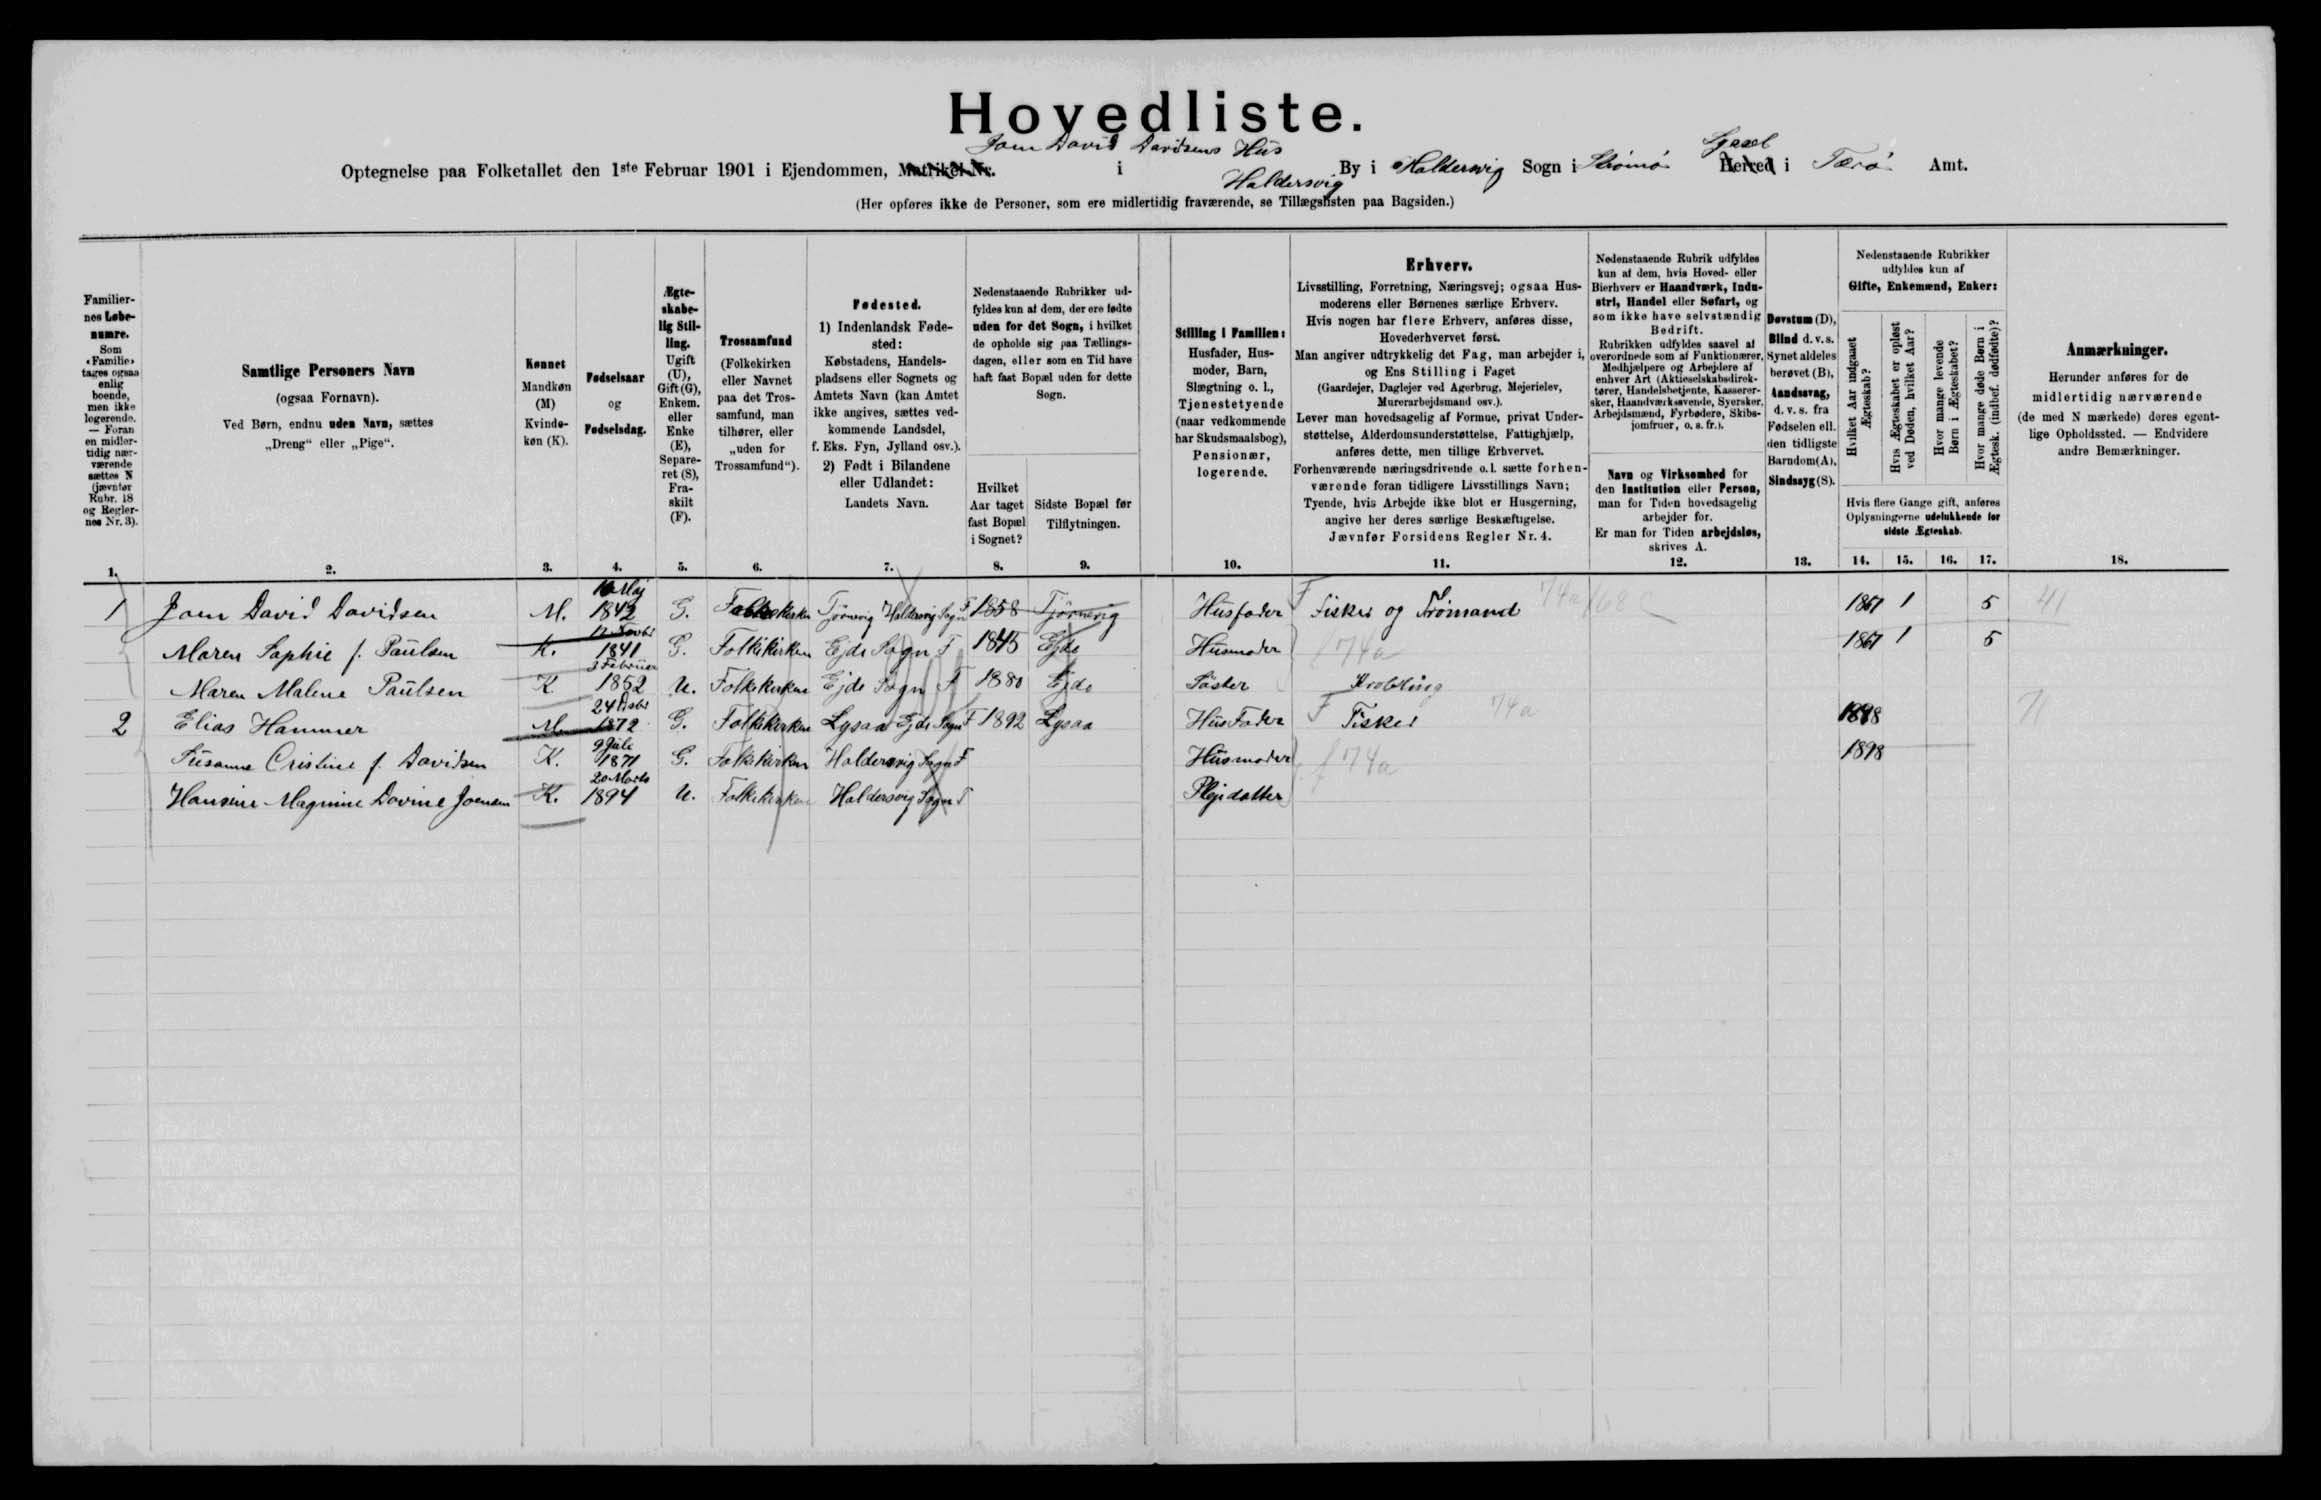 Hovedliste.
Joen David Davidsens Hus
Syssel
Optegnelse paa Folketallet den 1ste Februar 1901 i Ejendommen, Matrikel-Nr. i Haldersvig By i Haldersvig Sogn i Strömö Herred i Færö Amt.
(Her opføres ikke de Personer, som ere midlertidig fraværende, se Tillægslisten paa Bagsiden.)
Familiernes Løbenumre.
Som «Familie» tages ogsaa enlig boende, men ikke logerende. — Foran en midlertidig nærværende sættes N (jævnfør Rubr. 18 og Reglernes Nr. 3).
Samtlige Personers Navn
(ogsaa Fornavn).
Ved Børn, endnu uden Navn, sættes
„Dreng“ eller „Pige“.
Kønnet
Mandkøn (M)
Kvindekøn (K).
Fødselsaar
og
Fødselsdag.
Ægteskabelig Stilling.
Ugift (U), Gift (G), Enkem. eller Enke (E), Separeret (S), Fraskilt (F).
Trossamfund
(Folkekirken eller Navnet paa det Trossamfund, man tilhører, eller „uden for Trossamfund“).
Fødested.
1) Indenlandsk Fødested:
Købstadens, Handelspladsens eller Sognets og Amtets Navn (kan Amtet ikke angives, sættes vedkommende Landsdel, f. Eks. Fyn, Jylland osv.).
2) Født i Bilandene eller Udlandet:
Landets Navn.
Nedenstaaende Rubrikker udfyldes kun af dem, der ere fødte uden for det Sogn, i hvilket de opholde sig paa Tællingsdagen, eller som en Tid have haft fast Bopæl uden for dette Sogn.
Hvilket Aar taget fast Bopæl i Sognet?
Sidste Bopæl før Tilflytningen.
Stilling i Familien:
Husfader, Husmoder, Barn, Slægtning o. l., Tjenestetyende (naar vedkommende har Skudsmaalsbog), Pensionær, logerende.
Erhverv.
Livsstilling, Forretning, Næringsvej; ogsaa Husmoderens eller Børnenes særlige Erhverv.
Hvis nogen har flere Erhverv, anføres disse, Hovederhvervet først.
Man angiver udtrykkelig det Fag, man arbejder i, og Ens Stilling i Faget
(Gaardejer, Daglejer ved Agerbrug, Mejerielev, Murerarbejdsmand osv.).
Lever man hovedsagelig af Formue, privat Understøttelse, Alderdomsunderstøttelse, Fattighjælp, anføres dette, men tillige Erhvervet.
Forhenværende næringsdrivende o. l. sætte forhenværende foran tidligere Livsstillings Navn;
Tyende, hvis Arbejde ikke blot er Husgerning, angive her deres særlige Beskæftigelse.
Jævnfør Forsidens Regler Nr. 4.
Nedenstaaende Rubrik udfyldes kun af dem, hvis Hoved- eller Bierhverv er Haandværk, Industri, Handel eller Søfart, og som ikke have selvstændig Bedrift.
Rubrikken udfyldes saavel af overordnede som af Funktionærer, Medhjælpere og Arbejdere af enhver Art (Aktieselskabsdirektører, Handelsbetjente, Kasserersker, Haandværkssvende, Syersker, Arbejdsmænd, Fyrbødere, Skibsjomfruer, o. s. fr.).
Navn og Virksomhed for den Institution eller Person, man for Tiden hovedsagelig arbejder for.
Er man for Tiden arbejdsløs, skrives A.
Døvstum (D), Blind d. v. s. Synet aldeles berøvet (B), Aandssvag, d. v. s. fra Fødselen ell. den tidligste Barndom (A), Sindssyg (S).
Nedenstaaende Rubrikker udfyldes kun af
Gifte, Enkemænd, Enker:
Hvilket Aar indgaaet Ægteskab?
Hvis Ægteskabet er opløst ved Døden, hvilket Aar?
Hvor mange levende Børn i Ægteskabet?
Hvor mange døde Børn i Ægtesk. (indbef. dødfødte)?
Hvis flere Gange gift, anføres Oplysningerne udelukkende for sidste Ægteskab.
Anmærkninger.
Herunder anføres for de midlertidig nærværende (de med N mærkede) deres egentlige Opholdssted. — Endvidere andre Bemærkninger.
1. 2. 3. 4. 5. 6. 7. 8. 9. 10. 11. 12. 13. 14. 15. 16. 17. 18.
1 Joen David Davidsen M. Maj 1842 G. Folkekirken Tjörnevig Haldersvig Sogn F 1858 Tjörnevig Husfader F Fisker og Trömand 74a 68c 1867 1 5 41
Maren Sophie f. Paulsen K. 1841 G. Folkekirken Ejde Sogn F 1845 Ejde Husmoder f 74a 1867 1 5
Maren Malene Paulsen K 3 Februar 1852 U. Folkekirken Ejde Sogn F 1880 Ejde Söster Krobling
2 Elias Hammer M. 24 1872 G. Folkekirken Lysaa Ejde Sogn F 1892 Lysaa HusFader F Fisker 74a 1898 71
Susanne Cristine f. Davidsen K. 9 Juli 1871 G. Folkekirken Haldersvig Sogn F Husmoder f 74a 1898
Hansine Magnine Davine Joensen K. 20 Marts 1894 U. Folkekirken Haldersvig Sogn F Plejedatter